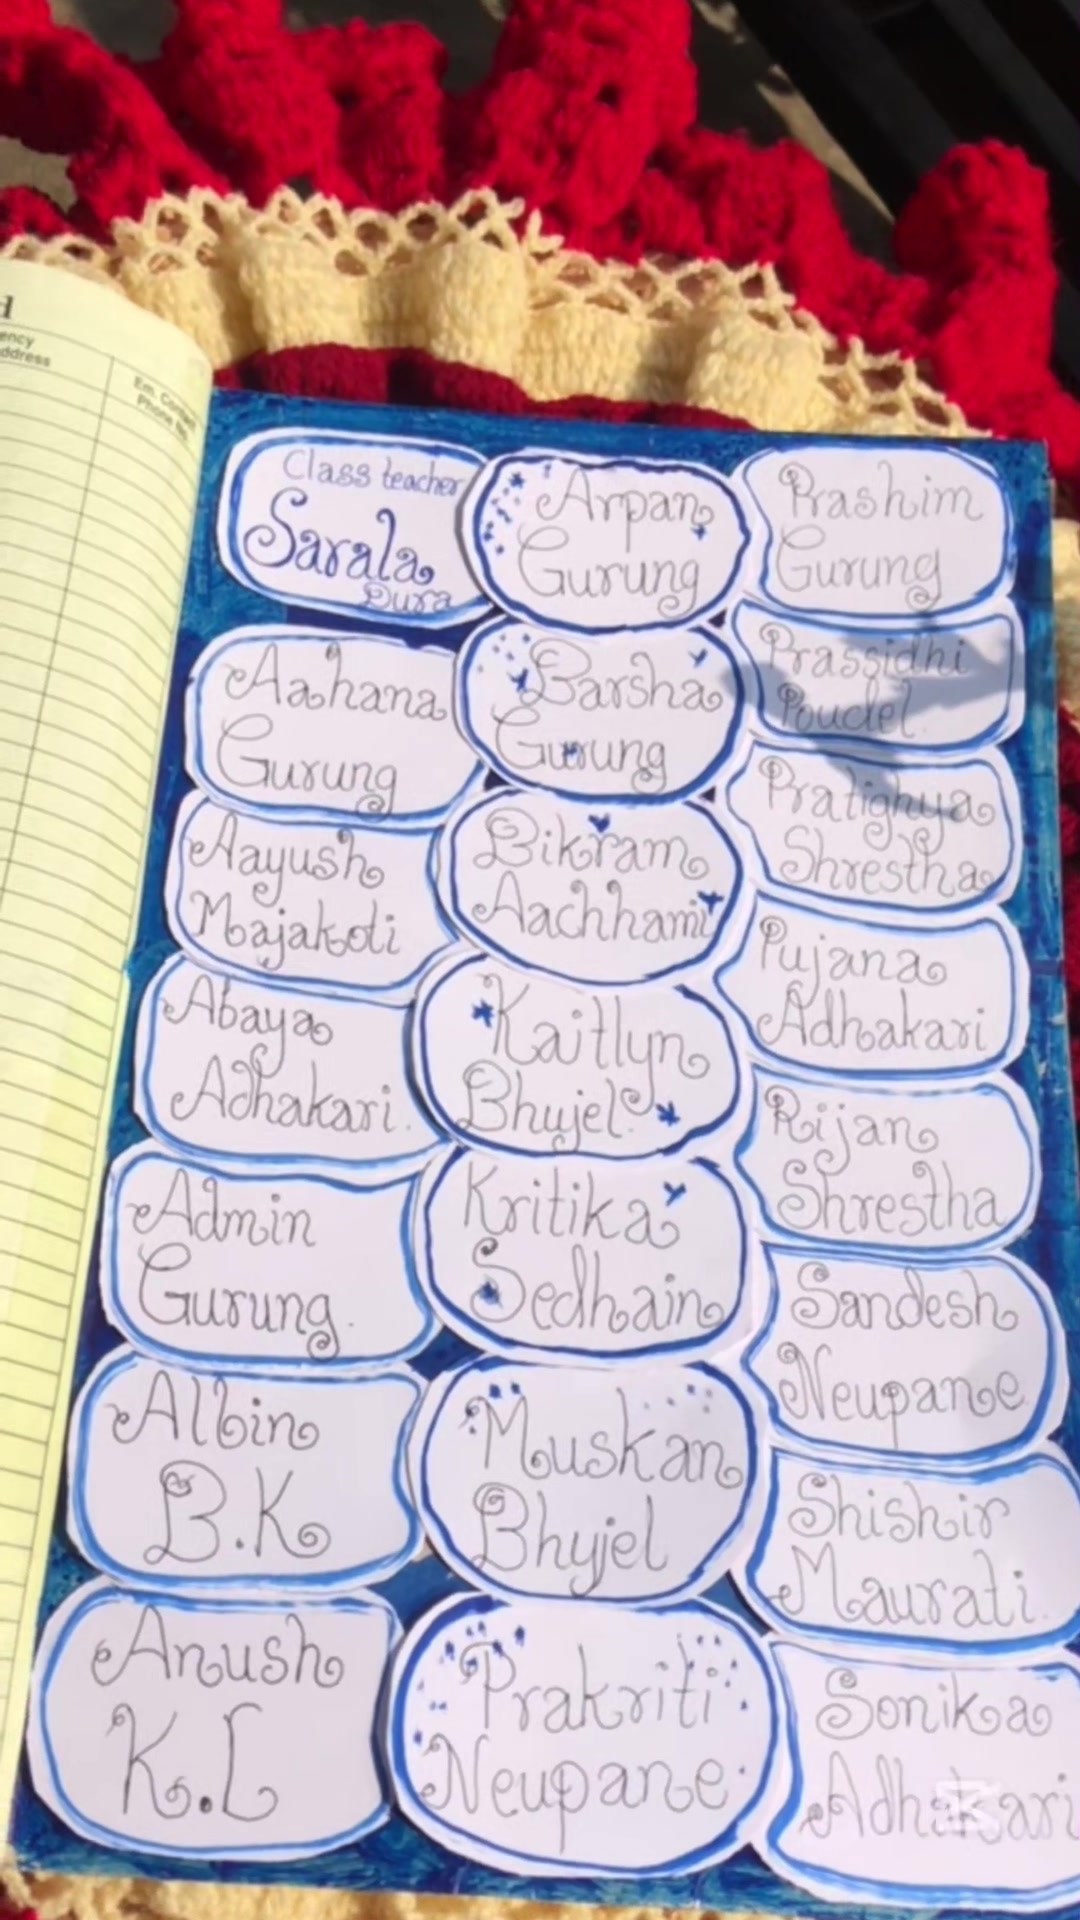 d
ency
ddress
Phone
Class teacher
Sarala
Dura
Aahana
Gurung
Aayush
Majakoti
Abaya
Adhakari.
Admin
Gurung.
Albin
B.K
Anush
K.C
Arpan
Gurung
Barsha
Gurung
Bikram
Aachhami
Kaitlyn
Bhujel.
Kritika
Sedhain
Muskan
Bhyjel
Prakriti
Neupane.
Prashim
Gurung
Prassidhi
Poudel.
Pratighya
Shrestha
Pujana
Adhakari
Rijan
Shrestha
Sandesh
Neupane
Shishir
Maurati.
Sonika
Adhakari